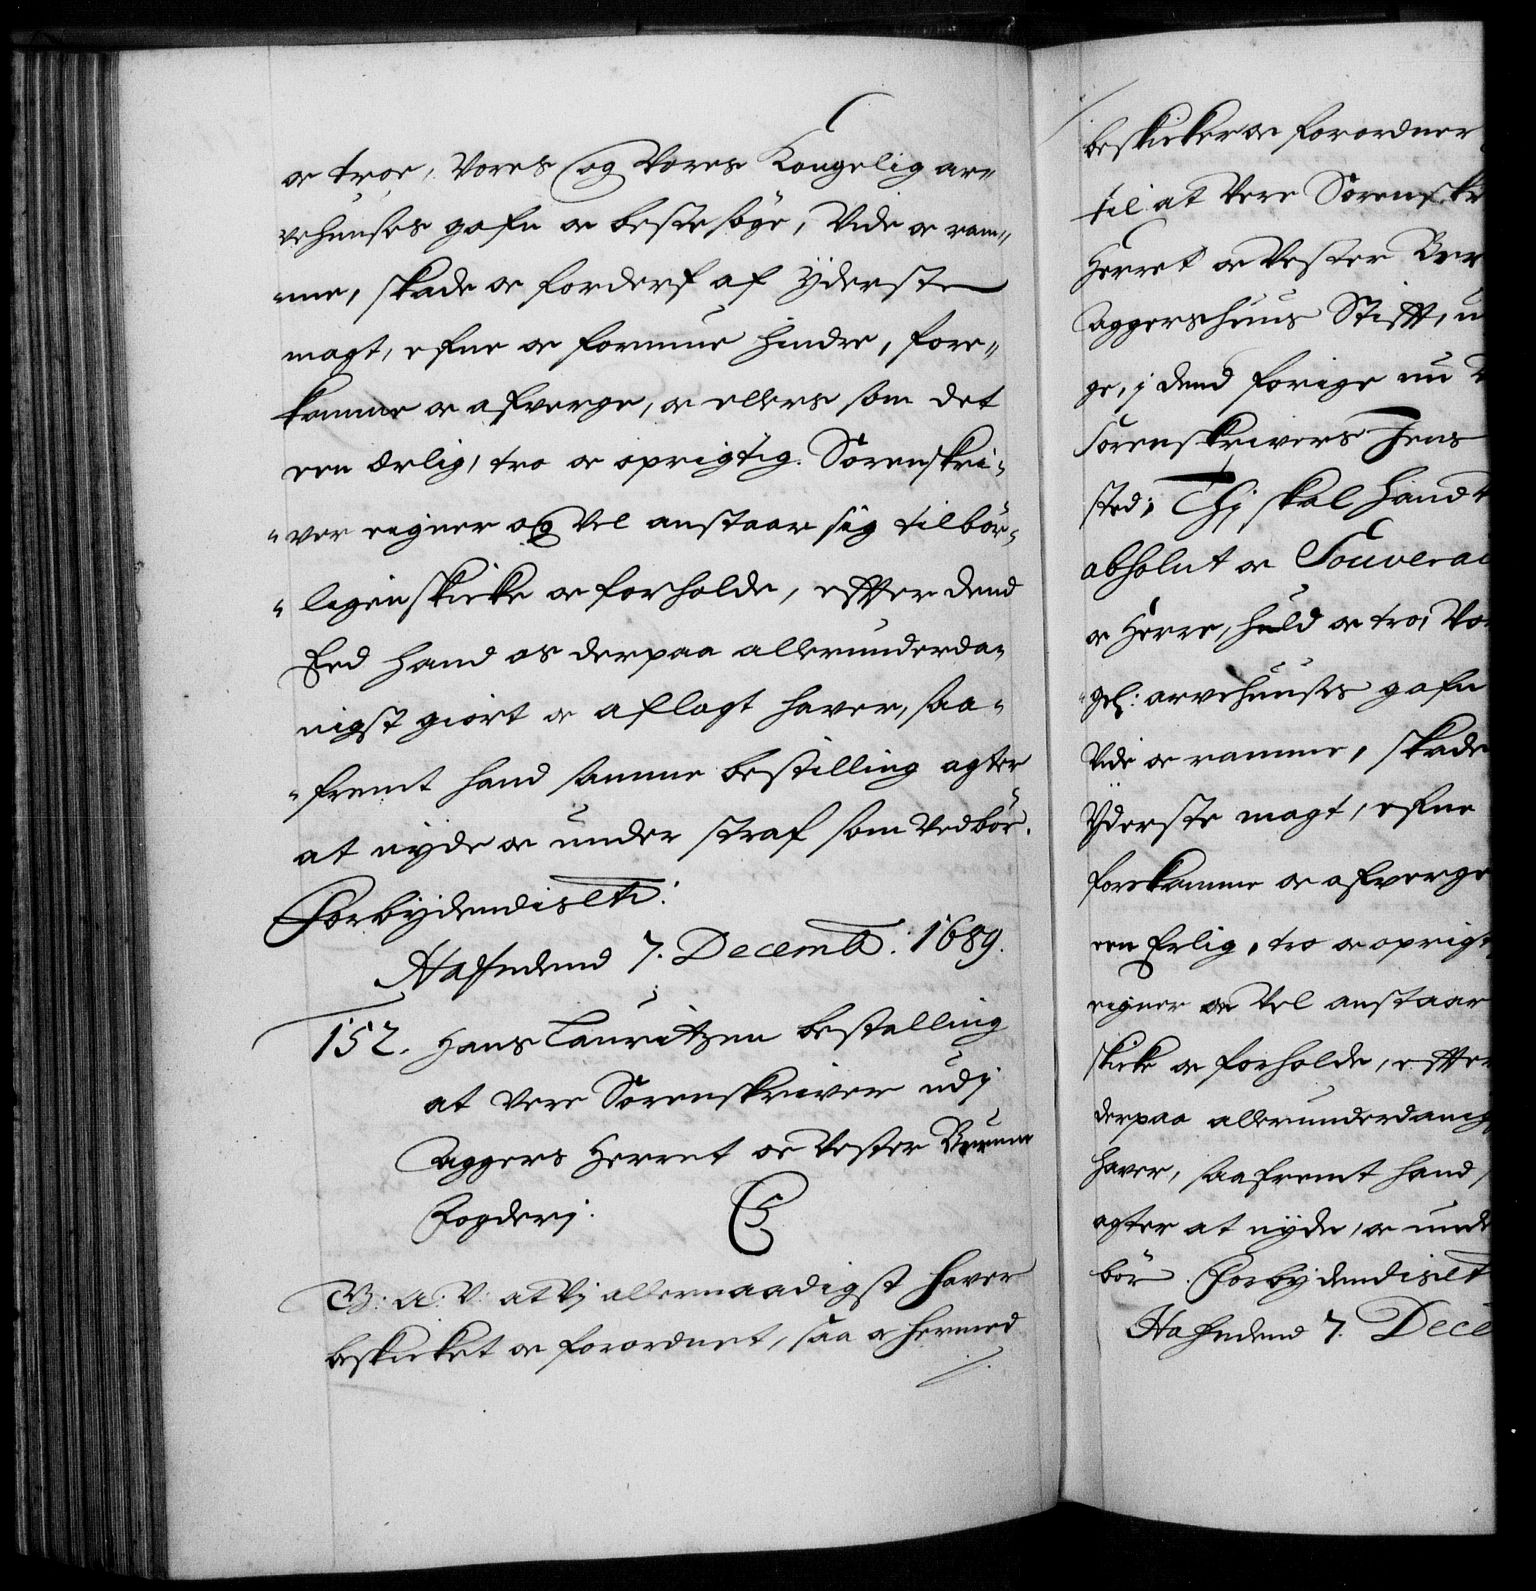 oc troe, Vores og Vores Kongelig ar„
vehuuses gafn oc beste söge, Vide oc ram„
„me, skade oc forderf af ÿderste
magt, efne oc formue hindre, fore„
komme oc afverge, oc ellers som det
een ærlig, tro oc oprigtig Sorenskri„
„ver eigner og vel anstaar sig tilbör„
„ligen skicke oc forholde, effter dend
Eed hand os derpaa allerunderda„
nigst giort oc aflagt haver, saa„
„fremt hand samme bestilling agter
at nÿde oc under straf som Vedbör.
Forbÿdendis etc:
Hafn dend 7. Decemb: 1689.
152. Hans Lauritzen bestalling
at vere Sorenskriver udj
Aggers Herret oc Vester Berum
Fogderj.
G: A: V: at Vj allernaadigst haver
beskicket oc forordnet, saa oc hermed
beskicker oc forordner
til at Vere Sorenskr
Herret oc Vester Ber
Aggershuus Stifft, u
ge, j dend forige nu
Sorenskrivers Jens
sted; Thj skal hand
absolut oc Souverai
oc Herre, huld oc tro, Vo
„gel: arvehuuses gafn
Vide oc ramme, skade
Ÿderste magt, efne
forekomme oc afverge
een Erlig, tro oc oprigt
eigner oc Vel anstaar
skicke oc forholde, effter
derpaa allerunderdanig
haver, saafremt hand
agter at nÿde, oc unde
bör. Forbÿdendis etc
Hafn dend 7. Dece